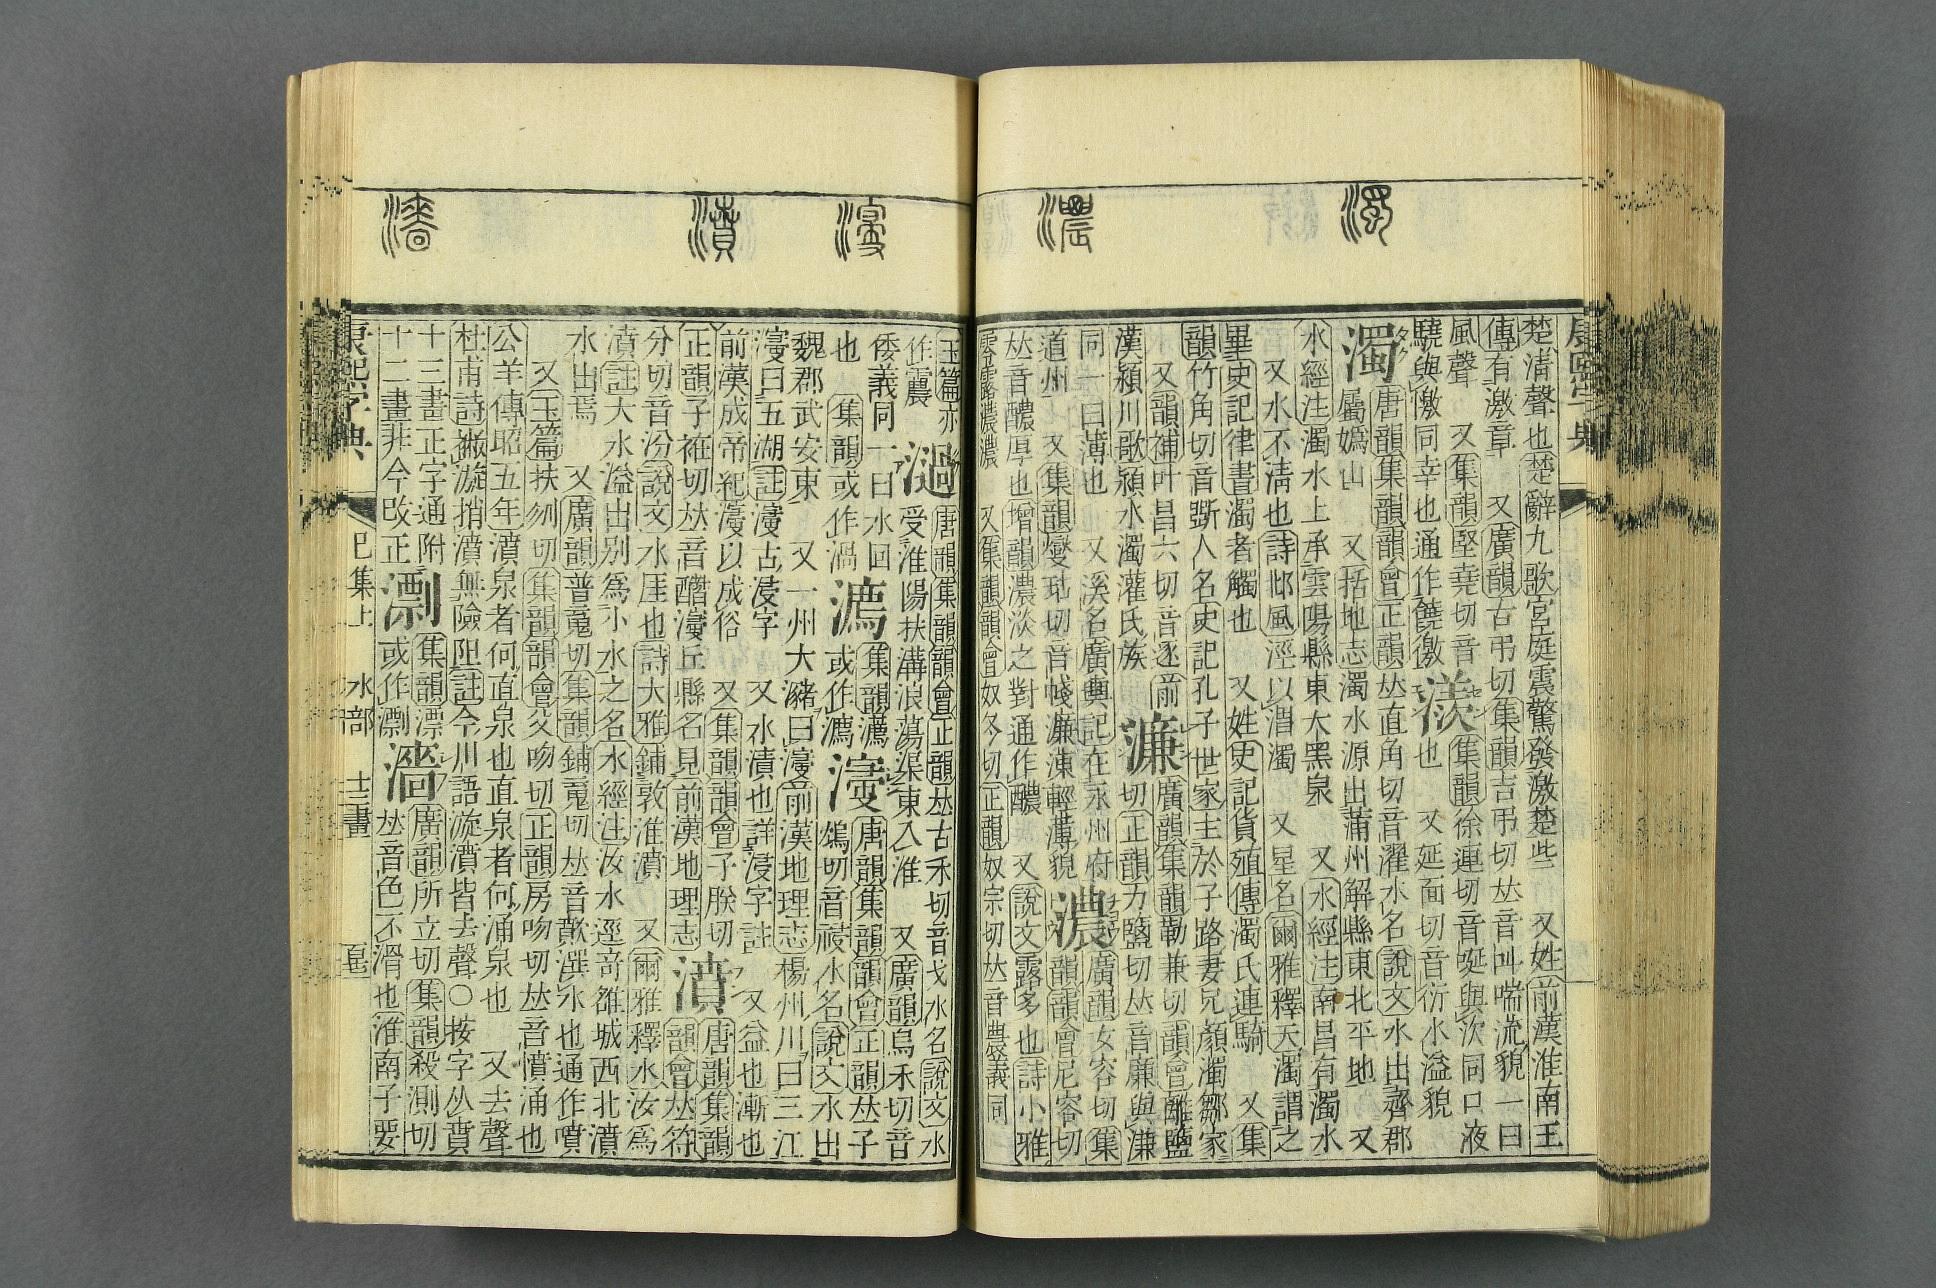 濁
濃
康熙字典
楚淸聲也楚辭九歌宮庭震驚發激楚些 又姓前漢淮南王
傳有激章 又廣韻古弔切集韻吉弔切𠀤音叫喘流貌一曰
風聲 又集韻堅堯切音
驍與儌同幸也通作饒儌
集韻徐連切音唌與㳄同口液
也 又延面切音衍水溢貌
濁
唐韻集韻韻會正韻𠀤直角切音濯水名說文水出齊郡
厲嬀山 又括地志濁水源出蒲州解縣東北平地 又
水經注濁水上承雲陽縣東大黑泉 又水經注南昌有濁水
又水不淸也詩邶風涇以渭濁 又星名爾雅釋天濁謂之
畢史記律書濁者觸也 又姓史記貨殖傳濁氏連騎 又集
韻竹角切音斲人名史記孔子世家主於子路妻兄顏濁鄒家
又韻補叶昌六切音逐前
漢潁川歌潁水濁灌氏族
濂
廣韻集韻勒兼切韻會離鹽
切正韻力鹽切𠀤音廉與溓
同一曰薄也 又溪名廣輿記在永州府
道州 又集韻燮玷切音濂涷輕薄貌
濃
廣韻女容切集
韻韻會尼容切
𠀤音醲厚也增韻濃淡之對通作醲 又說文露多也詩小雅
零露濃濃 又集韻韻會奴冬切正韻奴宗切𠀤音農義同
濅
濆
濇
玉篇亦
作
濄
唐韻集韻韻會正韻𠀤古禾切音戈水名說文水
受淮陽扶溝浪蕩渠東入淮 又廣韻烏禾切音
倭義同一曰水回
也 集韻或作渦
集韻瀌
或作
濅
唐韻集韻韻會正韻𠀤子
鴆切音祲水名說文水出
魏郡武安東 又一州大瀦曰濅前漢地理志楊州川曰三江
濅曰五湖註濅古浸字 又水漬也詳浸字註 又益也漸也
前漢成帝紀濅以成俗 又集韻韻會子朕切
正韻子袵切𠀤音濅丘縣名見前漢地理志
濆
唐韻集韻
韻會𠀤符
分切音汾說文水厓也詩大雅鋪敦淮濆 又爾雅釋水汝爲
濆註大水溢出別爲小水之名水經注汝水逕奇雒城西北濆
水出焉 又廣韻普䰟切集韻鋪䰟切𠀤音歕潠水也通作噴
又玉篇扶刎切集韻韻會父吻切正韻房吻切𠀤音憤涌也
公羊傳昭五年濆泉者何直泉也直泉者何涌泉也 又去聲
杜甫詩撇漩捎濆無險阻註今川語漩濆皆去聲○按字从賁
十三畫正字通附
十二畫非今改正
集韻漂
或作
濇
廣韻所立切集韻殺測切
𠀤音色不滑也淮南子要
康熙字典 巳集上 水部 十三畫